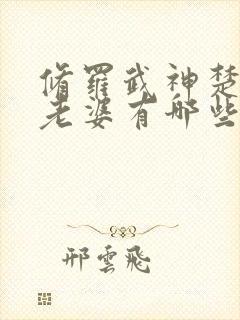 脩羅武神楚
老婆有哪些
邢雲飛